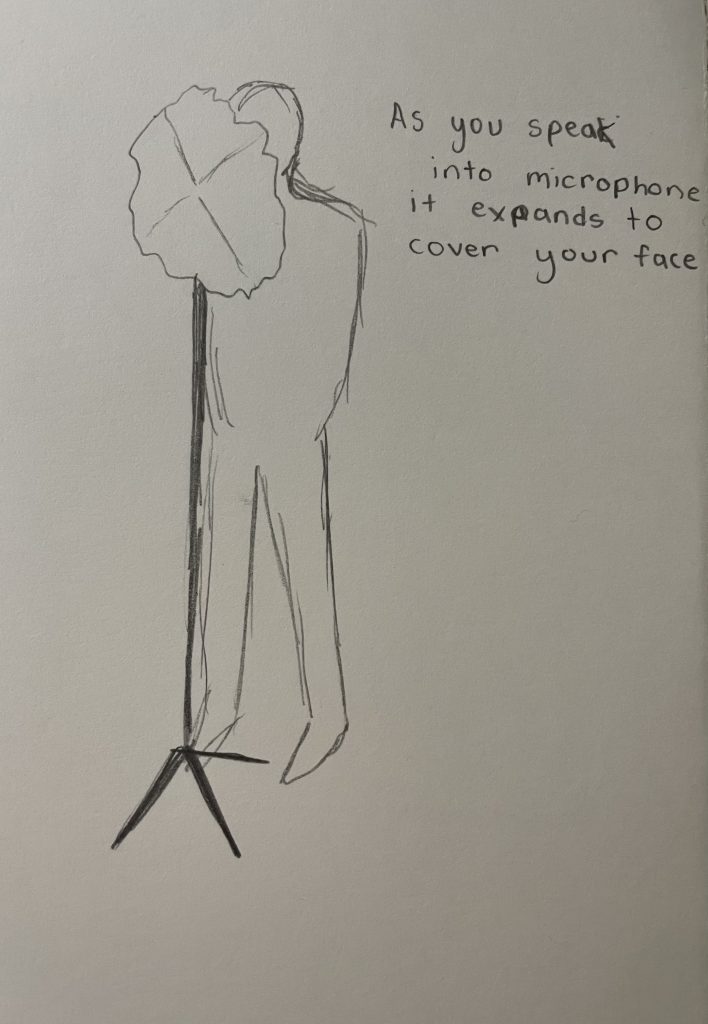 As you speak
into microphone
it expands to
cover your face